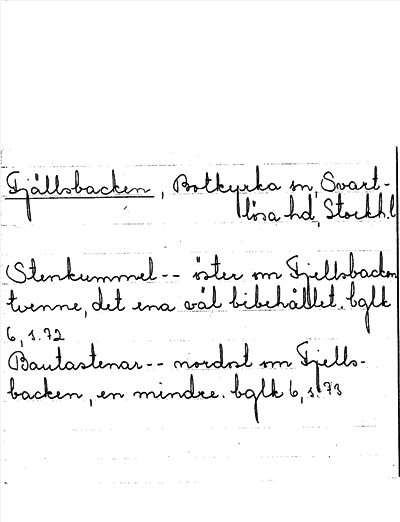 Fjällsbacken, Botkyrka sn, Svart-
lösa hd, Stockh.l
Stenkummel -- öster om Fjellsbacken
tvenne, det ena väl bibehållet. bglk
6, s. 72
Bautastenar -- nordost om Fjells-
backen, en mindre. bglk 6, s. 73